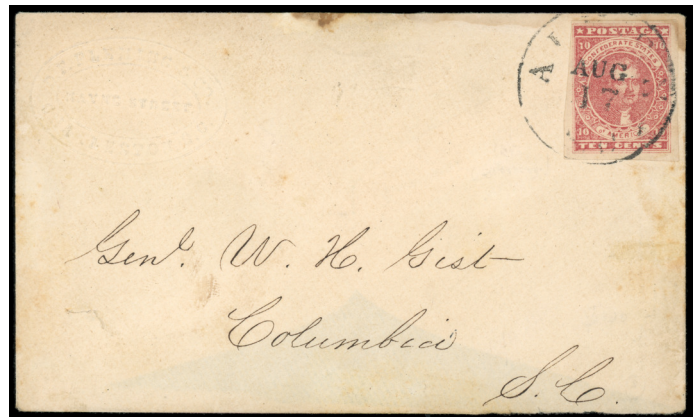 POSTAGE
10 10
CONFEDERATE STATES
AUG
17
OF AMERICA
10
TEN CENTS
Genl. W. H. Gist
Columbia
S. C.